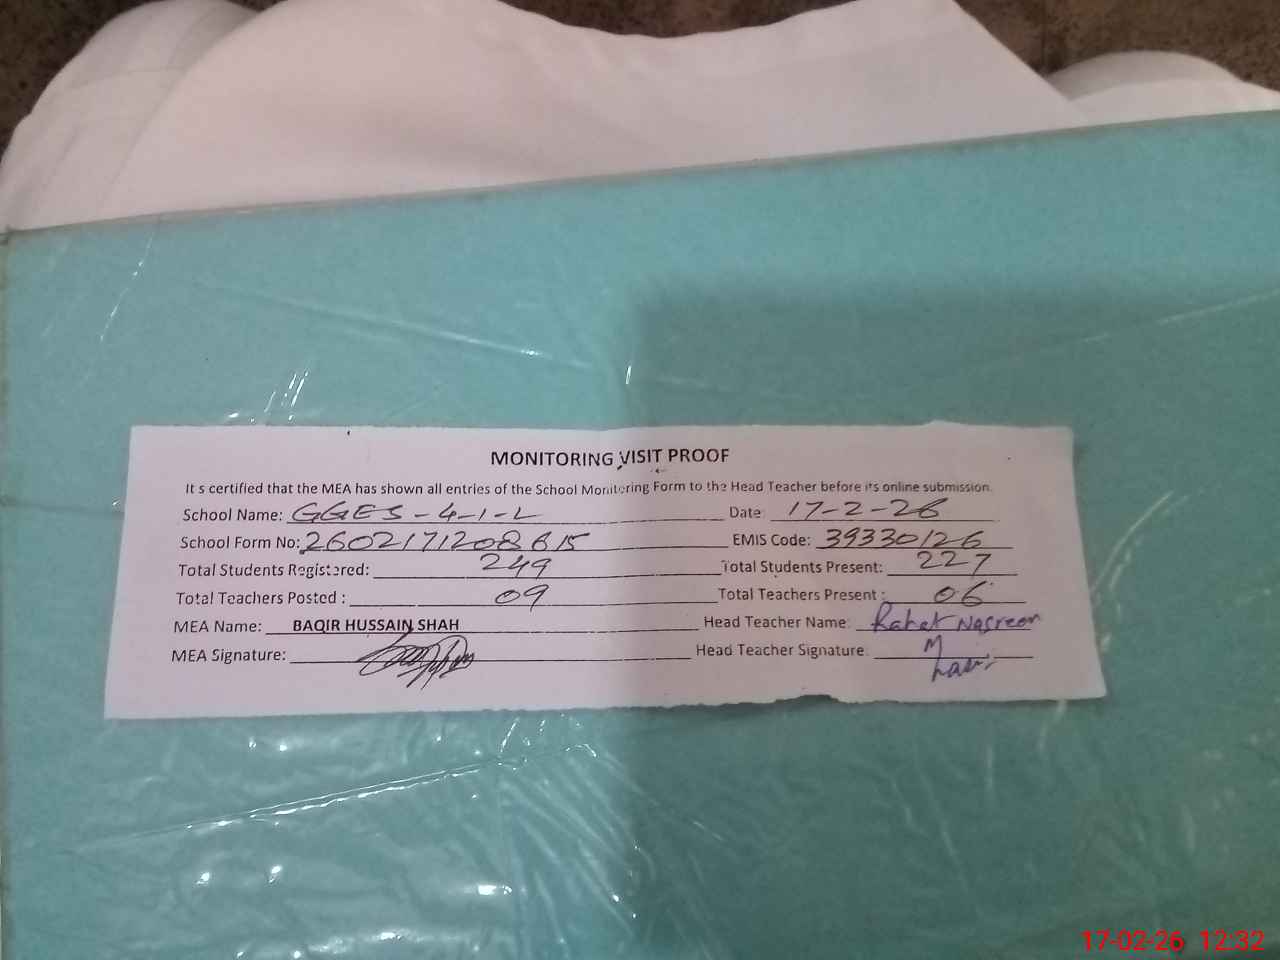 MONITORING VISIT PROOF
It s certified that the MEA has shown all entries of the School Monitoring Form to the Head Teacher before its online submission.
School Name: GGES-4-1-L Date: 17-2-26
School Form No: 2602171208615 EMIS Code: 39330126
Total Students Registered: 249 Total Students Present: 227
Total Teachers Posted : 09 Total Teachers Present : 06
MEA Name: BAQIR HUSSAIN SHAH Head Teacher Name: Rahat Nasreen
MEA Signature: Head Teacher Signature
17-02-26 12:32